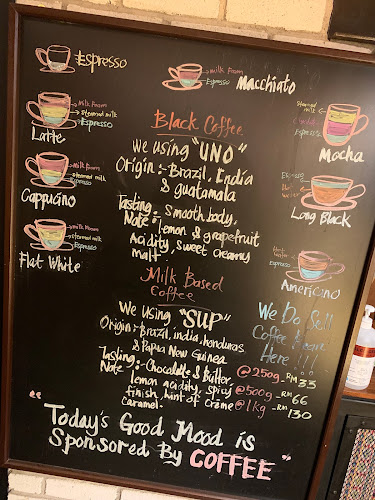 Espresso
milk foam
Espresso
Macchiato
Milk Foam
Steamed milk
Espresso
Latte
Milk Foam
steamed milk
Espresso
Cappucino
Milk Foam
steamed milk
Espresso
Flat White
steamed milk
Espresso
Mocha
Espresso
Hot water
Long Black
Hot water
Espresso
Americano
Black Coffee
We using "UNO"
Origin :- Brazil, India
& guatamala
Tasting Note :- Smooth body,
lemon & grapefruit
Acidity, sweet creamy
malt
Milk Based
Coffee
We using "SUP"
Origin :- Brazil, india, honduras
& Papua New Guinea
Tasting Note :- Chocolate & Butter,
lemon acidity, spicy
finish, hint of crème
caramel.
We Do Sell
Coffee Beans
Here !!!
@250g - RM 33
@500g - RM 66
@1kg - RM 130
"Today's Good Mood is
Sponsored By COFFEE"